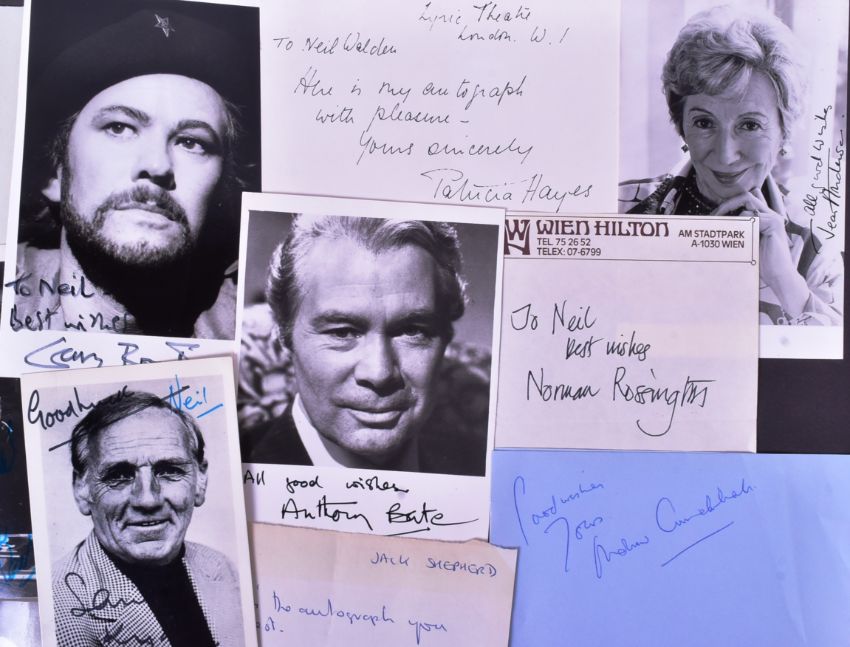 Lyric Theatre
London. W.1
To Neil Walden
Here is my autograph
with pleasure –
Yours sincerely
Patricia Hayes
To Neil
Best wishes
Gary Bond
All good wishes
Jean Anderson
WIEN HILTON
TEL 75 26 52
TELEX: 07-6799
AM STADTPARK
A-1030 WIEN
To Neil
Best wishes
Norman Rossington
Good luck Neil
All good wishes
Anthony Bate
Good wishes
Yours
Andrew Cruickshank
JACK SHEPHERD
the autograph you